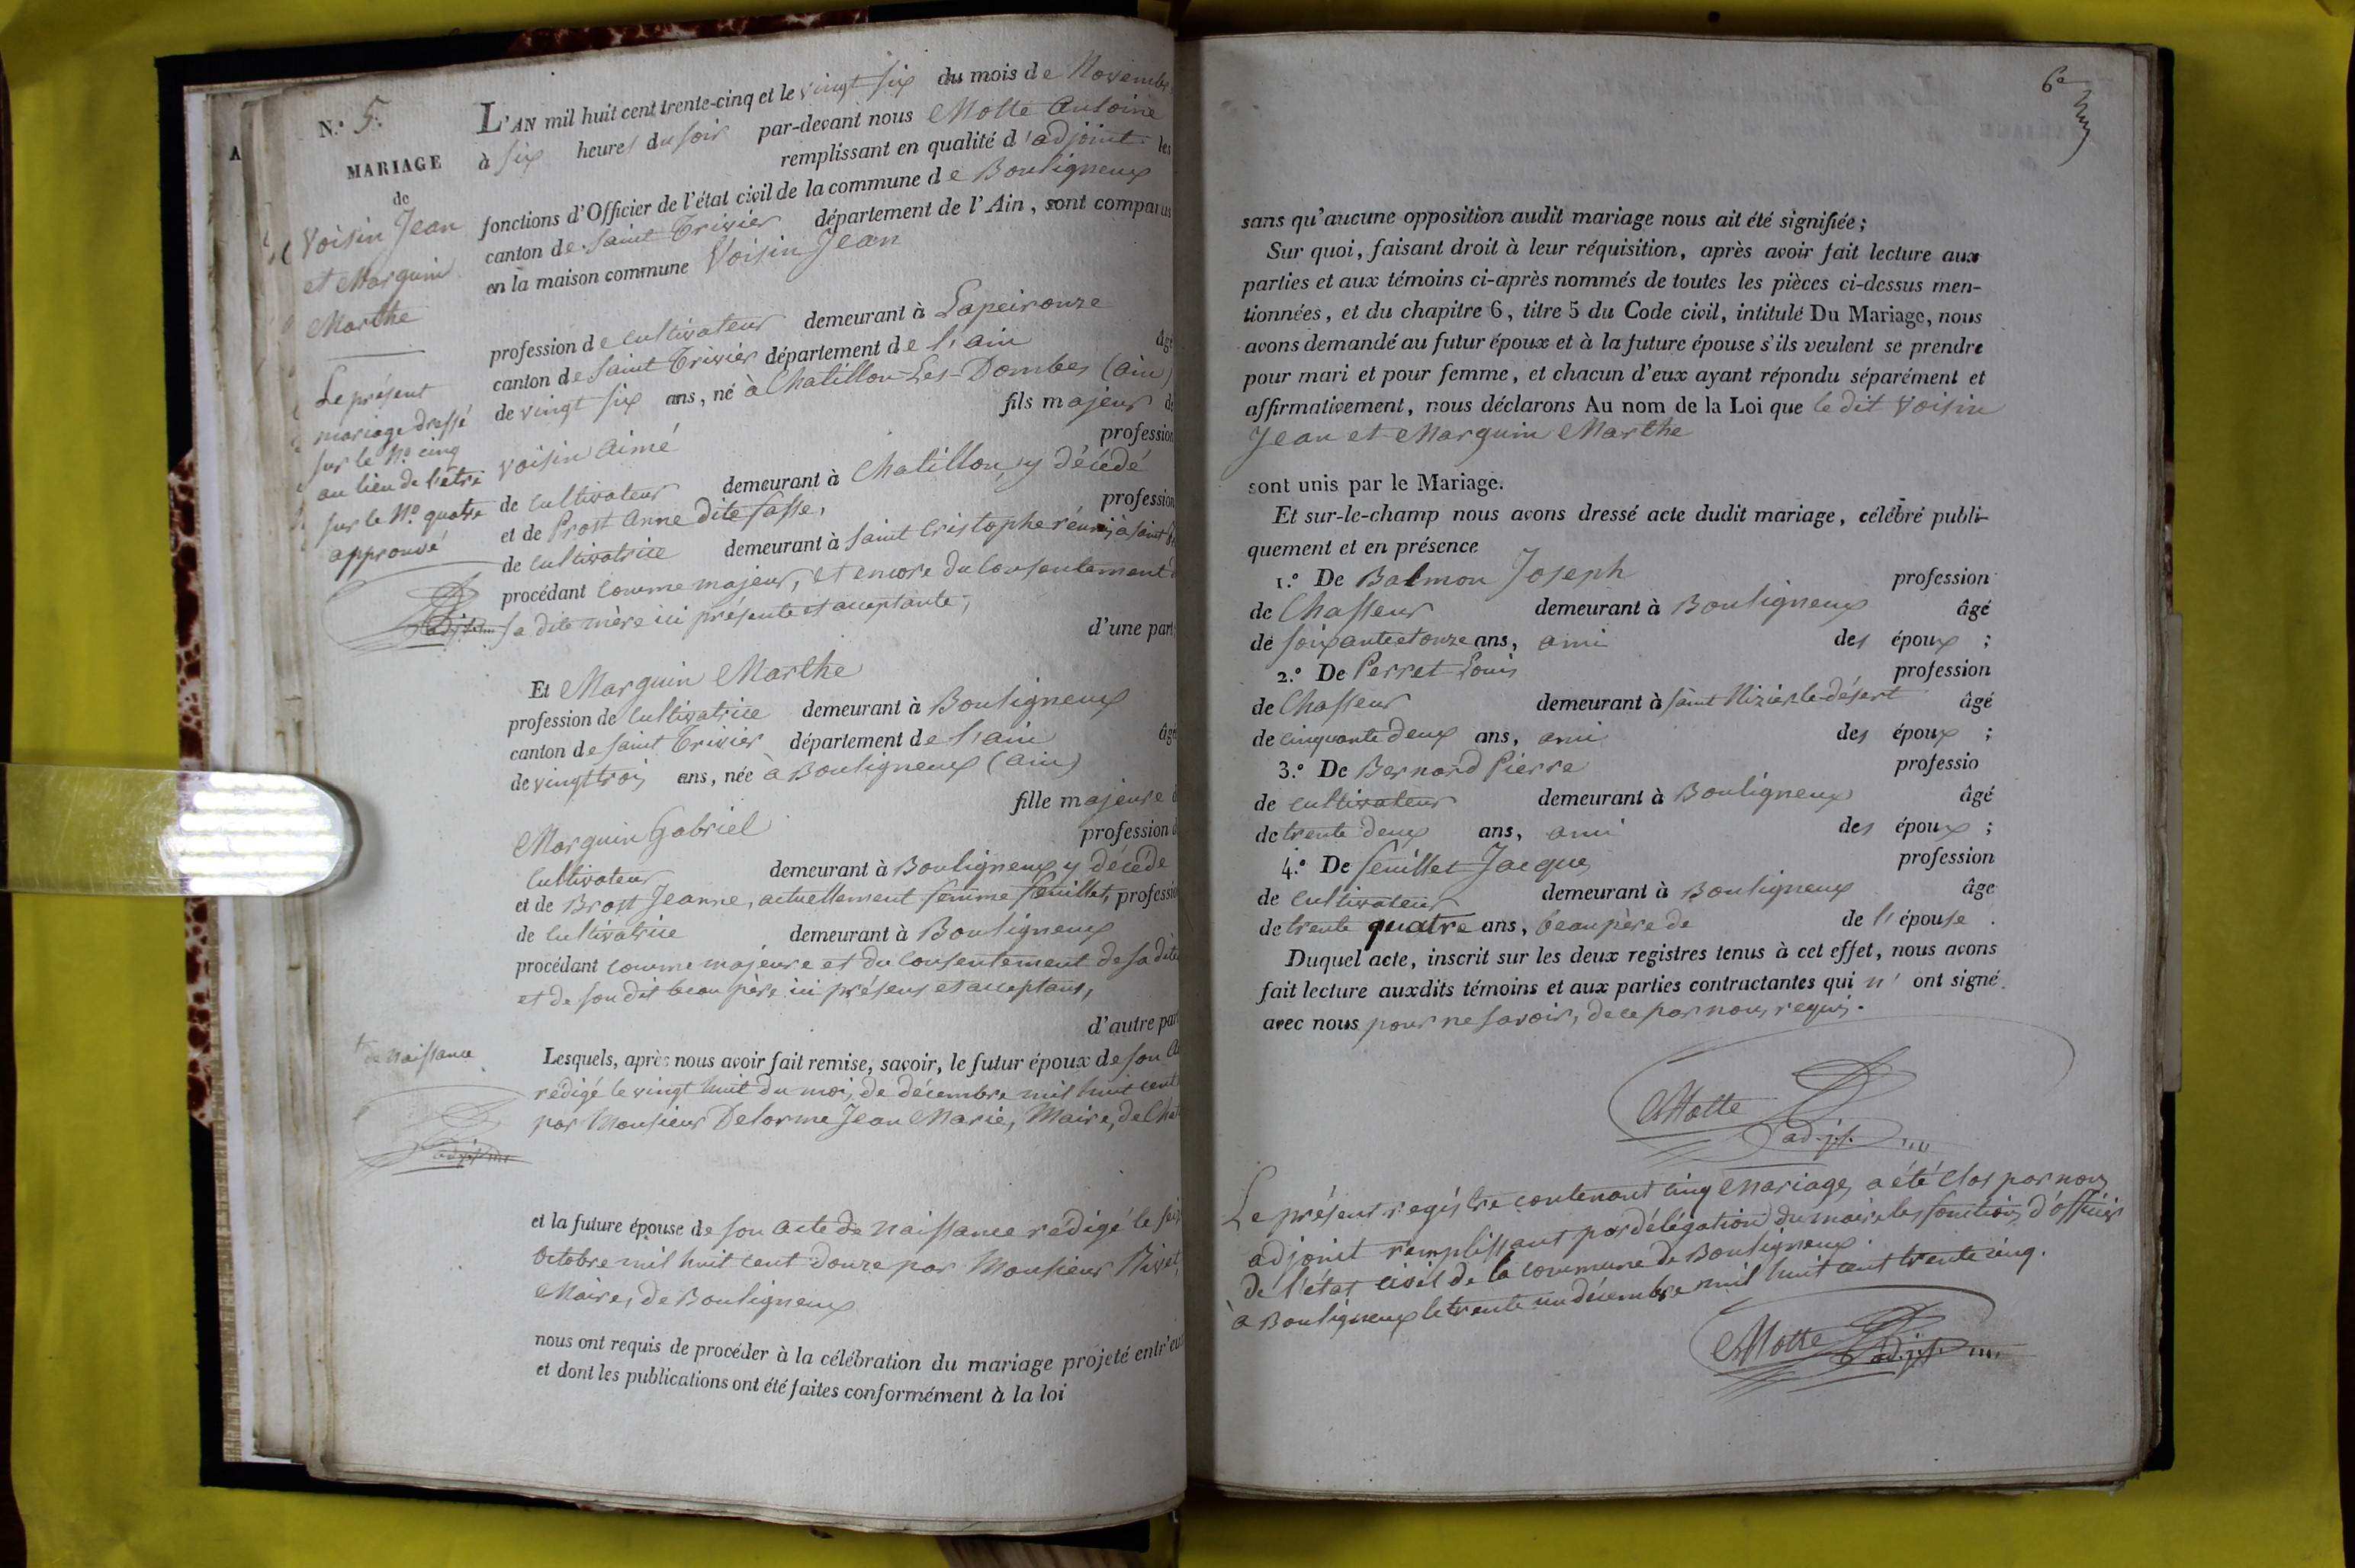 N.° 5.
MARIAGE
de
Voisin Jean
et Marguin
Marthe
Le présent
mariage dressé
sur le N.° cinq
au lieu de l'être
sur le N.° quatre
approuvé
adjoint
L'AN mil huit cent trente-cinq et le vingt six du mois de Novembre
à six heures du soir par-devant nous Motte Antoine
remplissant en qualité d'adjoint les
fonctions d'Officier de l'état civil de la commune de Bouligneux
canton de Saint Trivier département de l'Ain, sont comparus
en la maison commune Voisin Jean
profession de cultivateur demeurant à Lapeirouze
canton de Saint Trivier département de l'ain âgé
de vingt six ans, né à Chatillon-Les-Dombes (ain)
fils majeur de
voisin aimé profession
de cultivateur demeurant à Chatillon, y décédé
et de Prost Anne dite fasse, profession
de cultivatrice demeurant à Saint Cristophe réuni à Saint
procédant comme majeur, et encore du consentement
sa dite mère ici présente et acceptante,
d'une part
Et Marguin Marthe
profession de cultivatrice demeurant à Bouligneux
canton de Saint Trivier département de l'ain âgé
de vingt trois ans, née à Bouligneux (ain)
fille majeure
Marguin Gabriel profession
cultivateur demeurant à Bouligneux y décédé
et de Brost Jeanne, actuellement femme feuillet, professio
de cultivatrice demeurant à Bouligneux
procédant comme majeure et du consentement de sa dite
et de son dit beau père ici présens et acceptans,
d'autre part
de naissance
Lesquels, après nous avoir fait remise, savoir, le futur époux de son
rédigé le vingt huit du mois de décembre mil huit cent
par Monsieur Delorme Jean Marie, Maire, de Chat
et la future épouse de son acte de naissance rédigé le
Octobre mil huit cent douze par Monsieur Rivet,
Maire, de Bouligneux
nous ont requis de procéder à la célébration du mariage projeté entr'eux
et dont les publications ont été faites conformément à la loi
6e
sans qu'aucune opposition audit mariage nous ait été signifiée;
Sur quoi, faisant droit à leur réquisition, après avoir fait lecture aux
parties et aux témoins ci-après nommés de toutes les pièces ci-dessus men-
tionnées, et du chapitre 6, titre 5 du Code civil, intitulé Du Mariage, nous
avons demandé au futur époux et à la future épouse s'ils veulent se prendre
pour mari et pour femme, et chacun d'eux ayant répondu séparément et
affirmativement, nous déclarons Au nom de la Loi que le dit Voisin
Jean et Marguin Marthe
sont unis par le Mariage.
Et sur-le-champ nous avons dressé acte dudit mariage, célébré publi-
quement et en présence
1.° De Balmon Joseph profession
de Chasseur demeurant à Bouligneux âgé
de soixante et onze ans, ami des époux ;
2.° De Perret Louis profession
de Chasseur demeurant à Saint Nizier le désert âgé
de cinquante deux ans, ami des époux ;
3.° De Bernard Pierre professio
de cultivateur demeurant à Bouligneux âgé
de trente deux ans, ami des époux ;
4.° De feuillet Jacques profession
de cultivateur demeurant à Bouligneux âgé
de trente quatre ans, beau père de de l'épouse .
Duquel acte, inscrit sur les deux registres tenus à cet effet, nous avons
fait lecture auxdits témoins et aux parties contractantes qui n' ont signé
avec nous pour ne savoir, de ce par nous requis.
Motte
adjt.
Le présent registre contenant cinq Mariages a été clos par nous
adjoint remplissant par délégation du maire les fonctions d'officier
de l'état civil de la commune de Bouligneux.
à Bouligneux le trente un décembre mil huit cent trente cinq.
Motte
adjt.